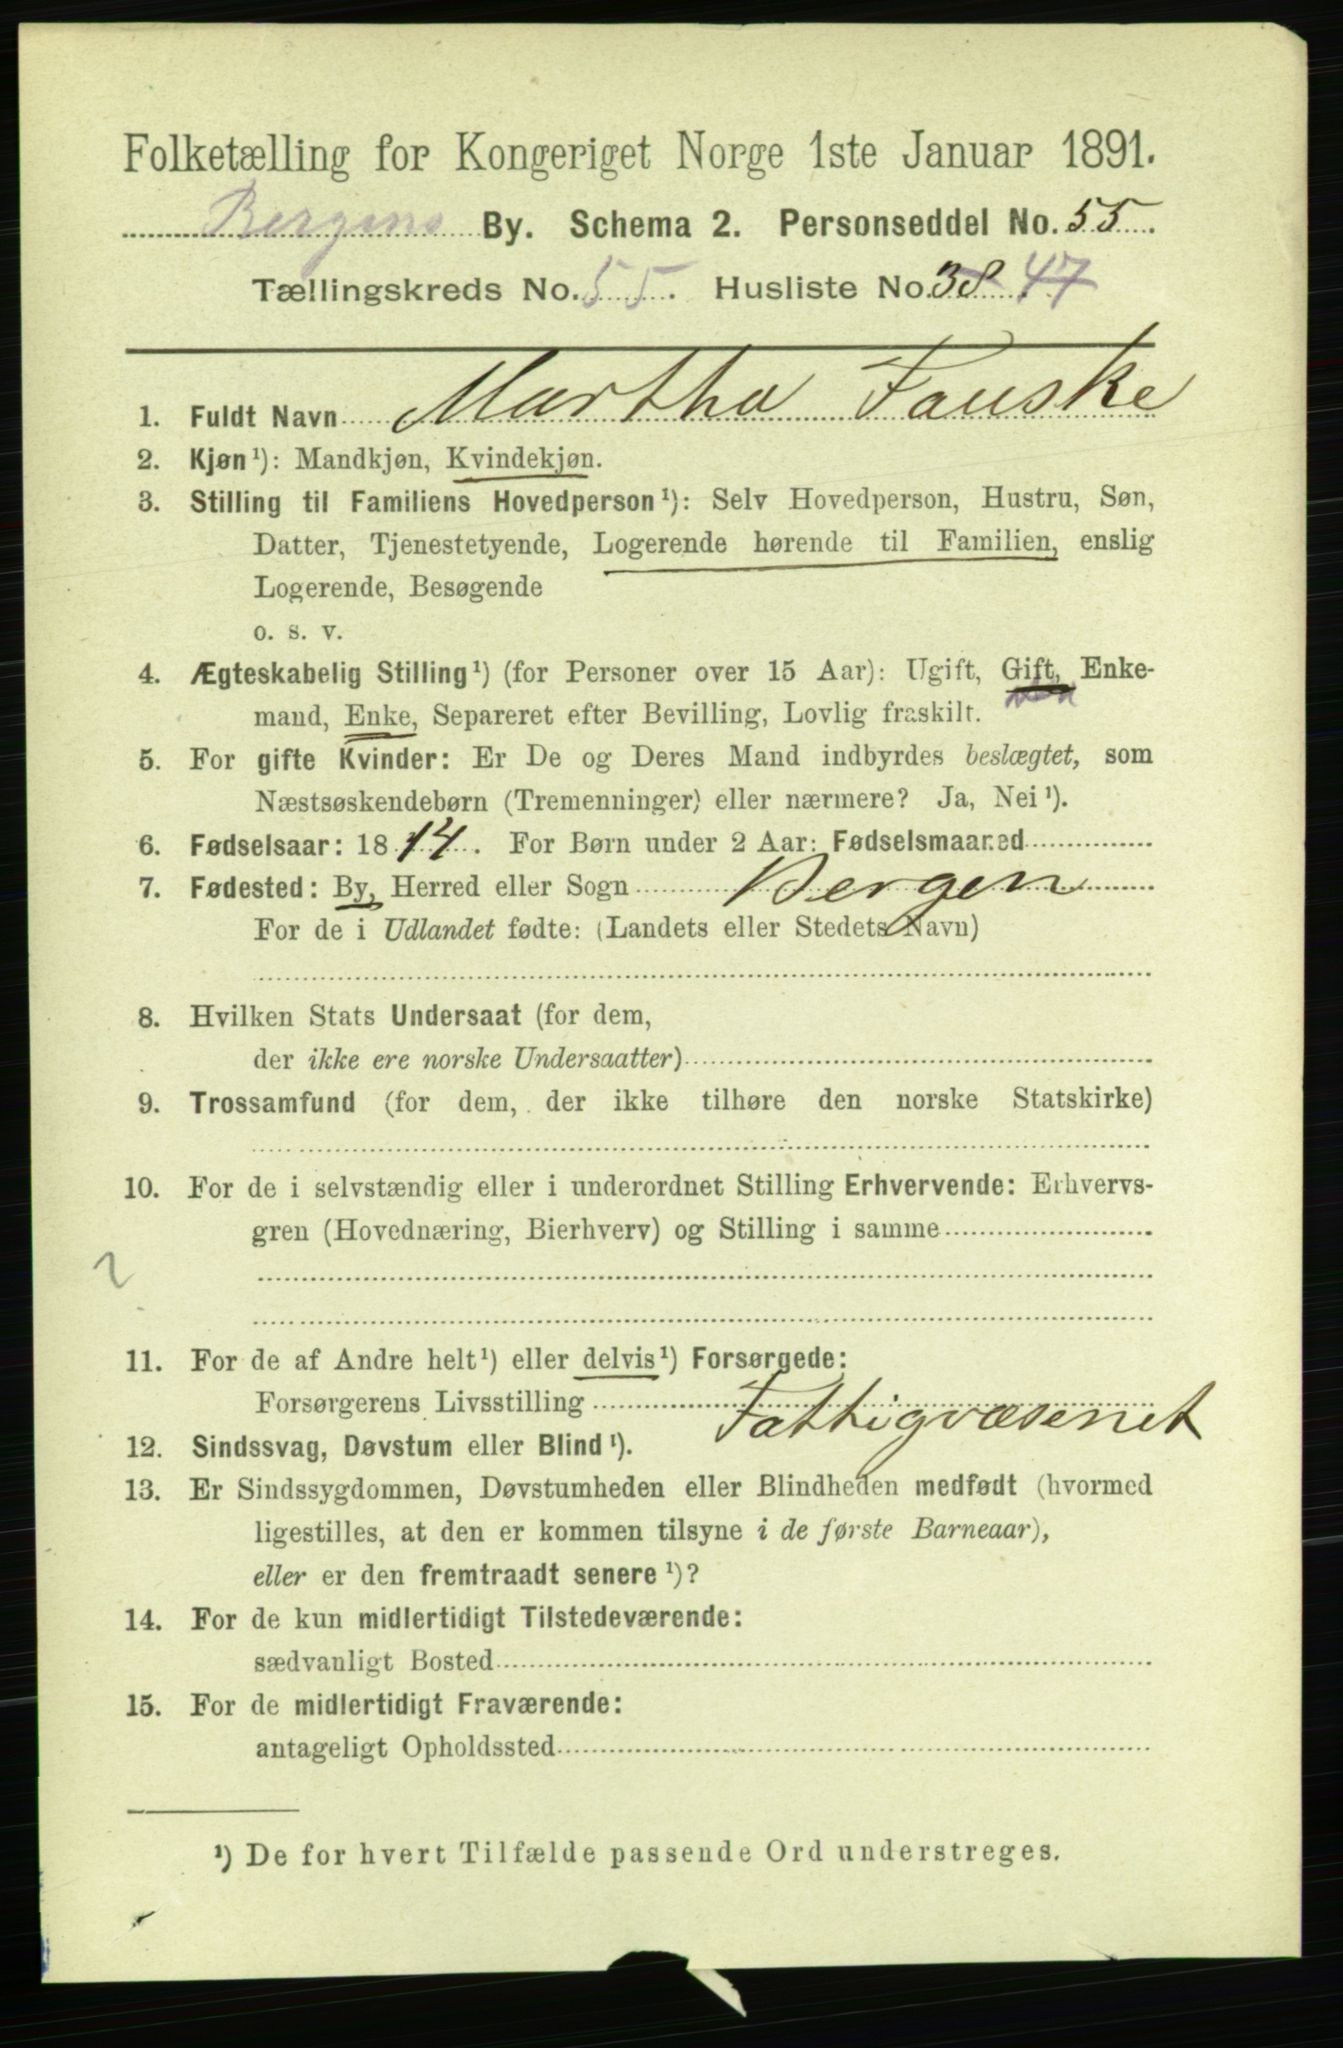 Folketælling for Kongeriget Norge 1ste Januar 1891.
Bergens By. Schema 2. Personseddel No. 55.
Tællingskreds No. 55. Husliste No. 38 47
1. Fuldt Navn Martha Fauske
2. Kjøn¹): Mandkjøn, Kvindekjøn.
3. Stilling til Familiens Hovedperson¹): Selv Hovedperson, Hustru, Søn,
Datter, Tjenestetyende, Logerende hørende til Familien, enslig
Logerende, Besøgende
o. s. v.
4. Ægteskabelig Stilling¹) (for Personer over 15 Aar): Ugift, Gift, Enke-
mand, Enke, Separeret efter Bevilling, Lovlig fraskilt.
5. For gifte Kvinder: Er De og Deres Mand indbyrdes beslægtet, som
Næstsøskendebørn (Tremenninger) eller nærmere? Ja, Nei¹).
6. Fødselsaar: 1814. For Børn under 2 Aar: Fødselsmaaned
7. Fødested: By, Herred eller Sogn Bergen
For de i Udlandet fødte: (Landets eller Stedets Navn)
8. Hvilken Stats Undersaat (for dem,
der ikke ere norske Undersaatter)
9. Trossamfund (for dem, der ikke tilhøre den norske Statskirke)
10. For de i selvstændig eller i underordnet Stilling Erhvervende: Erhvervs-
gren (Hovednæring, Bierhverv) og Stilling i samme
2
11. For de af Andre helt¹) eller delvis¹) Forsørgede:
Forsørgerens Livsstilling Fattigvæsenet
12. Sindssvag, Døvstum eller Blind¹).
13. Er Sindssygdommen, Døvstumheden eller Blindheden medfødt (hvormed
ligestilles, at den er kommen tilsyne i de første Barneaar),
eller er den fremtraadt senere¹)?
14. For de kun midlertidigt Tilstedeværende:
sædvanligt Bosted
15. For de midlertidigt Fraværende:
antageligt Opholdssted
¹) De for hvert Tilfælde passende Ord understreges.